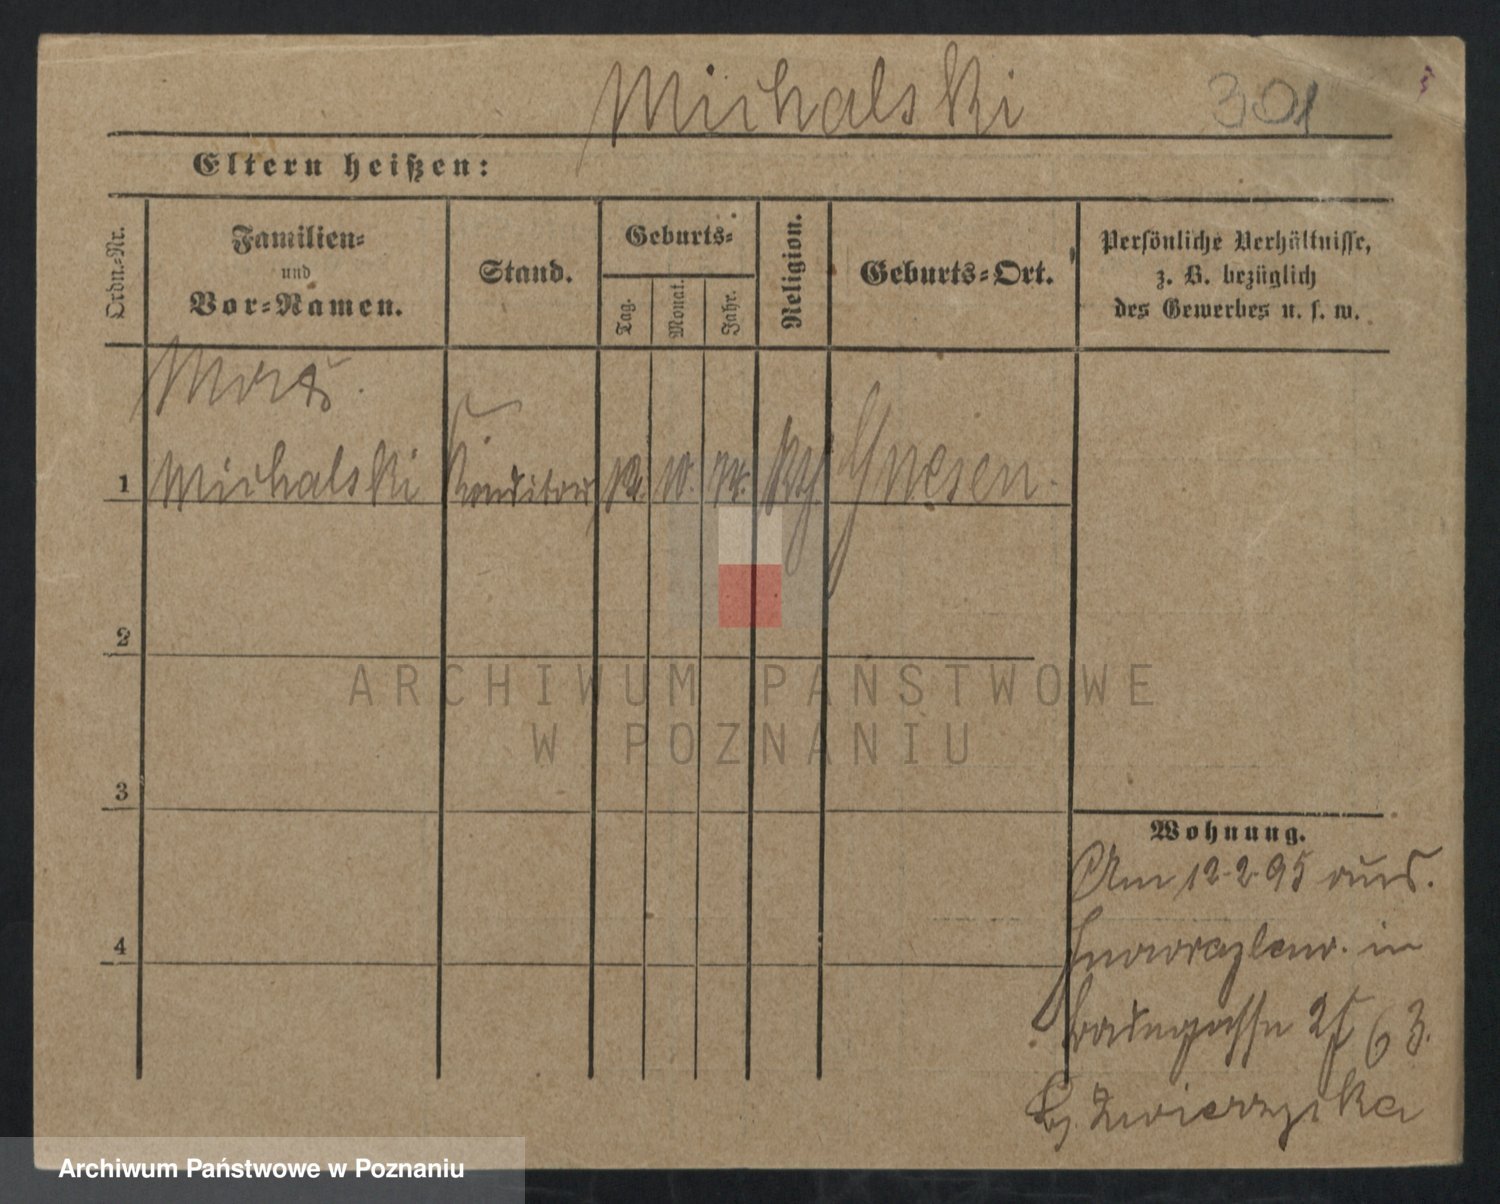 Michalski 301
Eltern heißen:
Ordn.-Nr.
Familien-
und
Vor-Namen.
Stand.
Geburts-
Tag.
Monat.
Jahr.
Religion.
Geburts-Ort.
Persönliche Verhältnisse,
z. B. bezüglich
des Gewerbes u. s. w.
1
Michalski Konditor 12. 10. 74. Gnesen.
2
3
4
Wohnung.
Am 12.2.95 aus.
Inowrazlaw. in
63.
Zwierzycka
ARCHIWUM PAŃSTWOWE
W POZNANIU
Archiwum Państwowe w Poznaniu